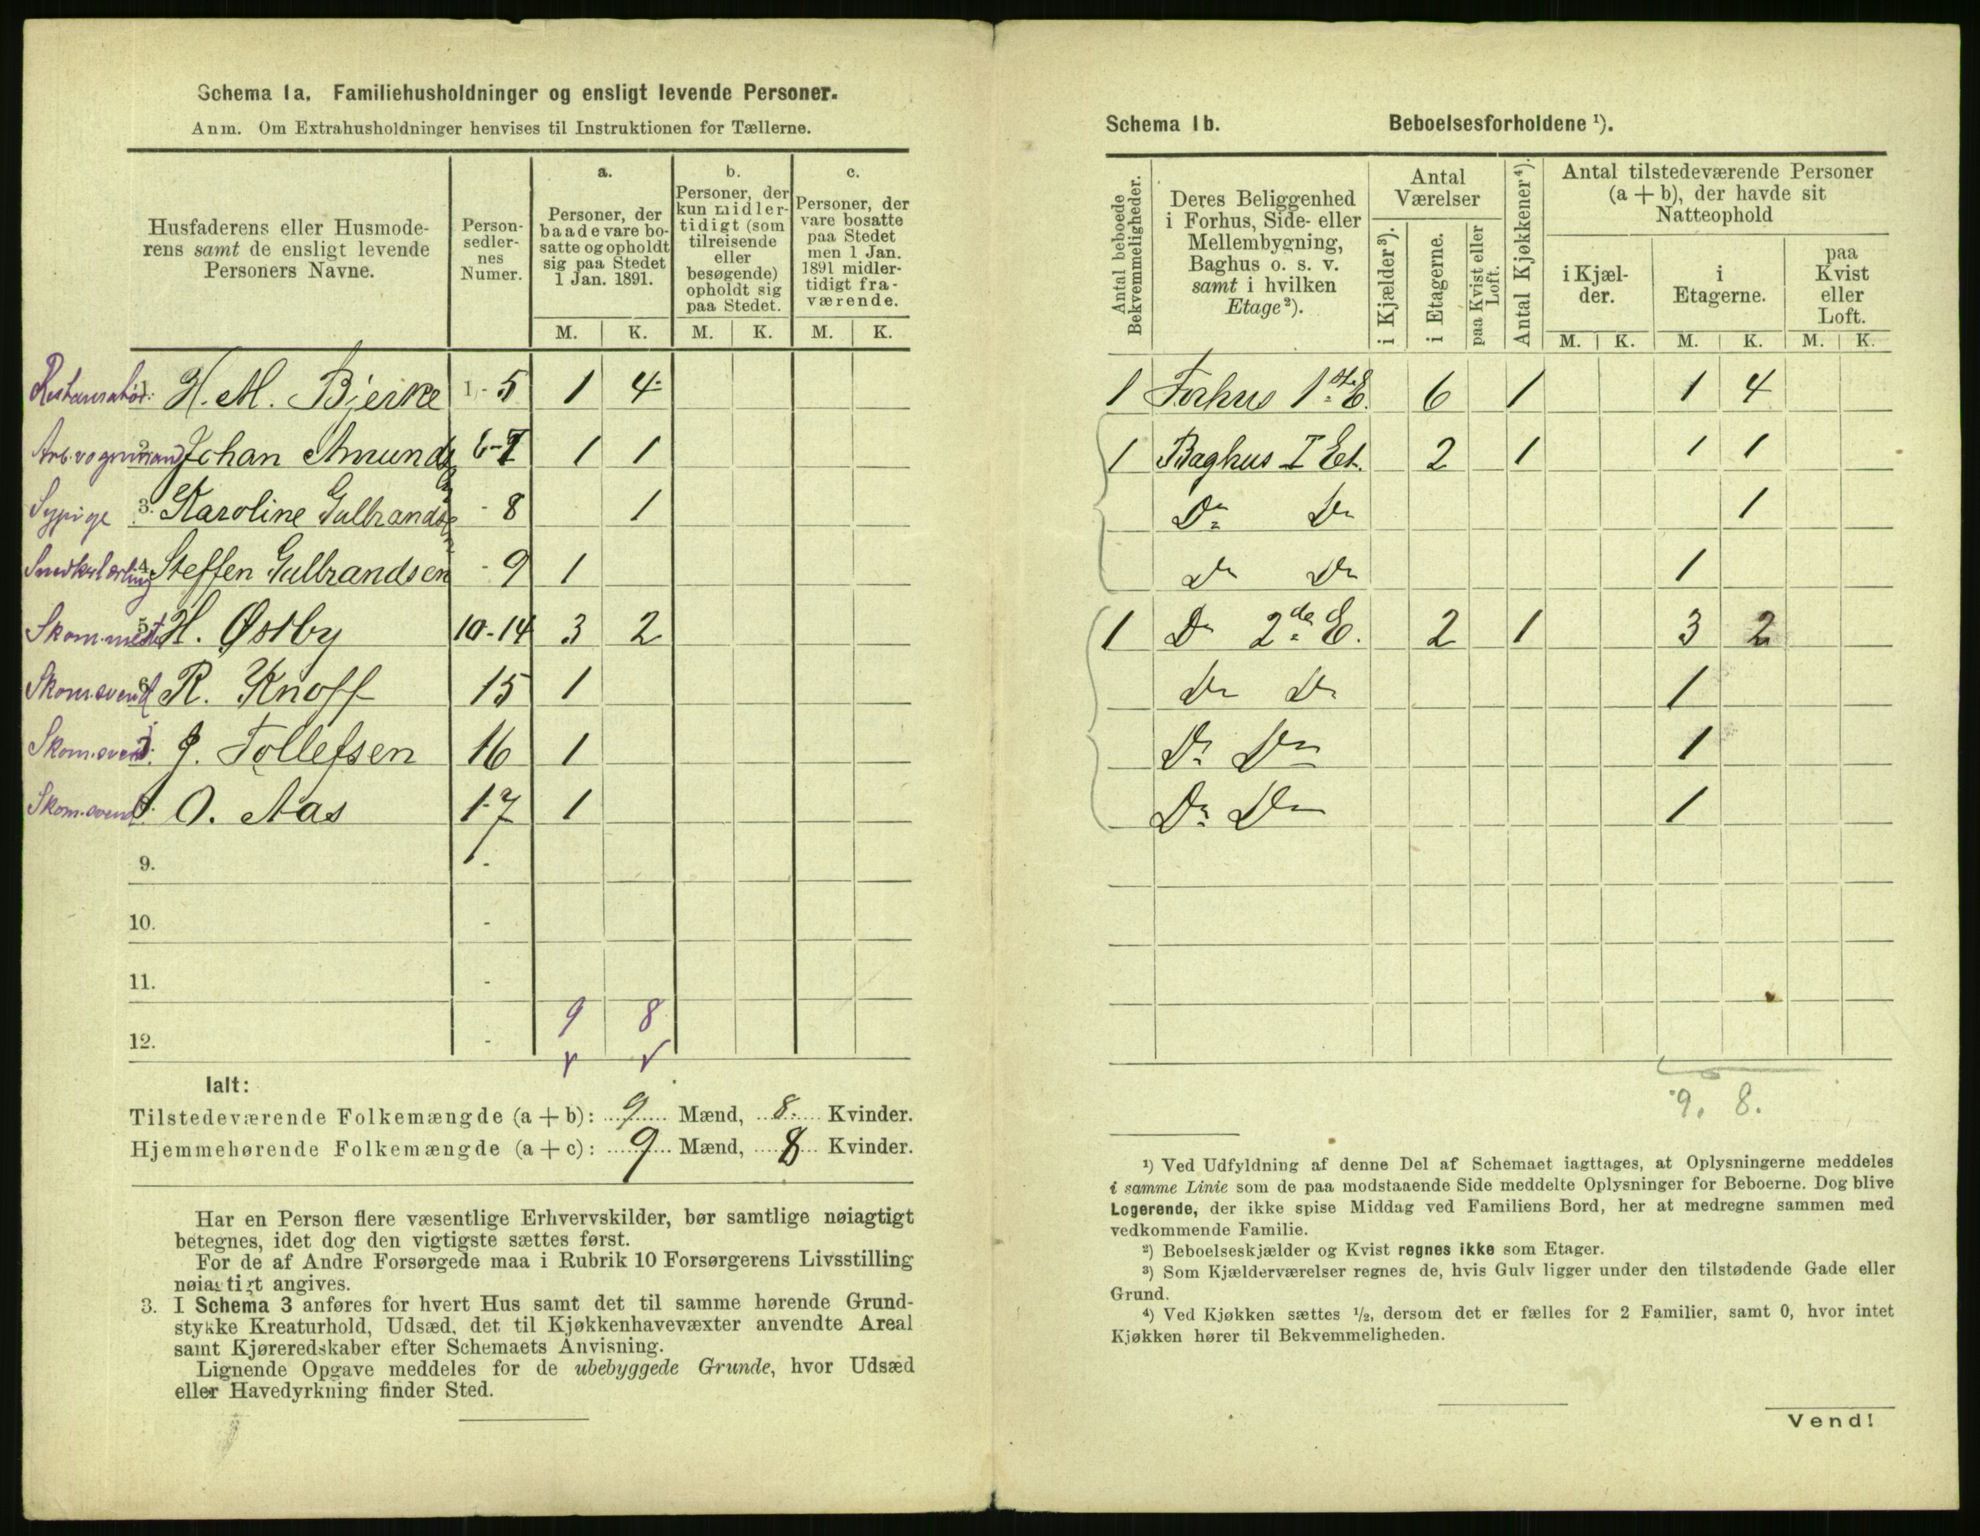 Schema 1a. Familiehusholdninger og ensligt levende Personer.
Anm. Om Extrahusholdninger henvises til Instruktionen for Tællerne.
Husfaderens eller Husmoderens samt de ensligt levende Personers Navne.
Personsedlernes Numer.
a. Personer, der baade vare bosatte og opholdt sig paa Stedet 1 Jan. 1891.
b. Personer, der kun midlertidigt (som tilreisende eller besøgende) opholdt sig paa Stedet.
c. Personer, der vare bosatte paa Stedet men 1 Jan. 1891 midlertidigt fraværende.
M. K. M. K. M. K.
Restauratør 1. H. M. Bjerke 1 - 5 1 4
Arb.vognmand 2. Johan Amunds 6-7 1 1
Sypige 3. Karoline Gulbrands - 8 1
Snedkerlærling 4. Steffen Gulbrandsen - 9 1
Skom.mester 5. H. Østby 10-14 3 2
Skom.svend 6. R. Knoff 15 1
Skom.svend 7. J. Tollefsen 16 1
Skom.svend 8. O. Aas 17 1
9. -
10. -
11. -
9 8
12. -
Ialt:
Tilstedeværende Folkemængde (a + b): 9 Mænd, 8 Kvinder.
Hjemmehørende Folkemængde (a + c): 9 Mænd, 8 Kvinder.
Har en Person flere væsentlige Erhvervskilder, bør samtlige nøiagtigt
betegnes, idet dog den vigtigste sættes først.
For de af Andre Forsørgede maa i Rubrik 10 Forsørgerens Livsstilling
nøiagtigt angives.
3. I Schema 3 anføres for hvert Hus samt det til samme hørende Grund-
stykke Kreaturhold, Udsæd, det til Kjøkkenhavevæxter anvendte Areal
samt Kjøreredskaber efter Schemaets Anvisning.
Lignende Opgave meddeles for de ubebyggede Grunde, hvor Udsæd
eller Havedyrkning finder Sted.
Schema 1b. Beboelsesforholdene ¹).
Antal beboede Bekvemmeligheder.
Deres Beliggenhed i Forhus, Side- eller Mellembygning, Baghus o. s. v. samt i hvilken Etage²).
Antal Værelser
i Kjælder³).
i Etagerne.
paa Kvist eller Loft.
Antal Kjøkkener⁴).
Antal tilstedeværende Personer (a + b), der havde sit Natteophold
i Kjælder.
i Etagerne.
paa Kvist eller Loft.
M. K. M. K. M. K.
1 Forhus 1ste E. 6 1 1 4
1 Baghus I Et. 2 1 1 1
Do Do 1
Do Do 1
1 Do 2de E. 2 1 3 2
Do Do 1
Do Do 1
Do Do 1
9. 8.
¹) Ved Udfyldning af denne Del af Schemaet iagttages, at Oplysningerne meddeles
i samme Linie som de paa modstaaende Side meddelte Oplysninger for Beboerne. Dog blive
Logerende, der ikke spise Middag ved Familiens Bord, her at medregne sammen med
vedkommende Familie.
²) Beboelseskjælder og Kvist regnes ikke som Etager.
³) Som Kjælderværelser regnes de, hvis Gulv ligger under den tilstødende Gade eller
Grund.
⁴) Ved Kjøkken sættes ½, dersom det er fælles for 2 Familier, samt 0, hvor intet
Kjøkken hører til Bekvemmeligheden.
Vend!